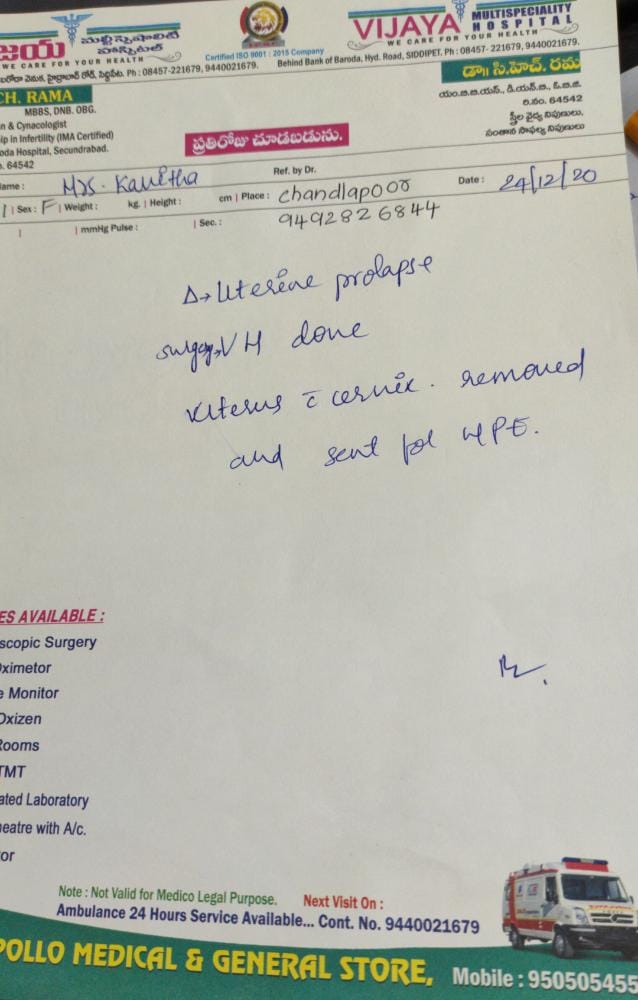 జయ మల్టిస్పెషాలిటి హాస్పిటల్
WE CARE FOR YOUR HEALTH
బరోడా వెనుక, హైద్రాబాద్ రోడ్, సిద్దిపేట. Ph : 08457-221679, 9440021679.
Certified ISO 9001 : 2015 Company
VIJAYA MULTISPECIALITY HOSPITAL
WE CARE FOR YOUR HEALTH
Behind Bank of Baroda, Hyd. Road, SIDDIPET. Ph : 08457- 221679, 9440021679.
CH. RAMA
MBBS, DNB. OBG.
n & Cynacologist
ip in Infertility (IMA Certified)
oda Hospital, Secundrabad.
. 64542
డా॥ సి.హెచ్. రమ
యం.బి.బి.యస్., డి.యన్.బి., ఓ.బి.జి.
రి.నం. 64542
స్త్రీల వైద్య నిపుణులు,
సంతాన సాఫల్య నిపుణులు
ప్రతిరోజు చూడబడును.
ame : Mrs. Kavitha Ref. by Dr. Date : 24/12/20
| Sex : F | Weight : kg. | Height : cm | Place : chandlapoor
| mmHg Pulse : | Sec. : 9492826844
Δ→ Uterine prolapse
surgery→ VH done
Uterus c̄ cervix. removed
and sent for HPE.
ES AVAILABLE :
scopic Surgery
Oximetor
e Monitor
Oxizen
Rooms
TMT
ated Laboratory
eatre with A/c.
or
Note : Not Valid for Medico Legal Purpose. Next Visit On :
Ambulance 24 Hours Service Available... Cont. No. 9440021679
POLLO MEDICAL & GENERAL STORE, Mobile : 950505455